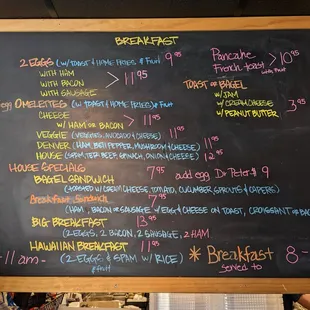 BREAKFAST
2 EGGS (W/ TOAST & HOME FRIES & Fruit 9.95
WITH HAM
WITH BACON > 11.95
WITH SAUSAGE
egg OMELETTES (W/ TOAST & HOME FRIES) & Fruit
CHEESE
W/ HAM OR BACON > 11.95
VEGGIE (VEGGIES, AVOCADO & CHEESE) 11.95
DENVER (HAM, BELL PEPPER, MUSHROOM & CHEESE) 11.95
HOUSE (SPAM, TER BEEF, SPINACH, ONION & CHEESE) 12.95
HOUSE SPECIALS
BAGEL SANDWICH 7.95 add egg
(TOASTED W/ CREAM CHEESE, TOMATO, CUCUMBER, SPROUTS & CAPERS)
Breakfast Sandwich 7.95
(HAM, BACON OR SAUSAGE W/ EGG & CHEESE ON TOAST, CROISSANT OR BA
BIG BREAKFAST 13.95
(2 EGGS, 2 BACON, 2 SAUSAGE, 2 HAM
HAWAIIAN BREAKFAST 11.95
(2 EGGS & SPAM W/ RICE)
& fruit
Pancake
French toast > 10.95
with Fruit
TOAST OR BAGEL
W/ JAM
W/ CREAM CHEESE 3.95
W/ PEANUT BUTTER
Dr Peter $ 9
11am -
* Breakfast 8-
served to